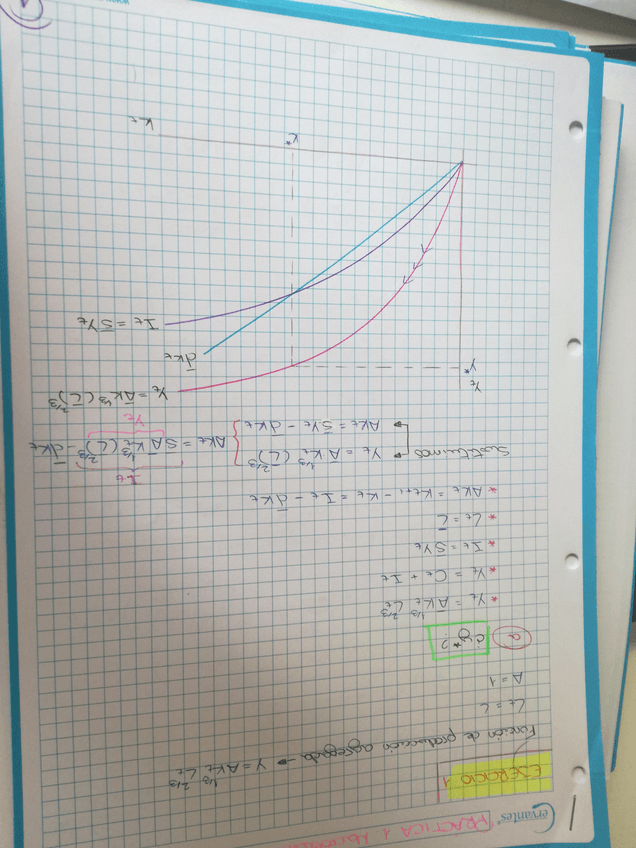 Cervantes PRÁCTICA 1
EJERCICIO 1
Función de producción agregada → Y = AKt^1/3 Lt^2/3
Lt = L
A = 1
a) ¿y*?
* Yt = ĀKt^1/3 Lt^2/3
* Yt = Ct + It
* It = s̄Yt
* Lt = L̄
* ΔKt = Kt+1 - Kt = It - d̄Kt
Sustituimos → Yt = ĀKt^1/3 (L̄)^2/3
→ ΔKt = s̄Yt - d̄Kt
ΔKt = s̄ĀKt^1/3 (L̄)^2/3 - d̄Kt
It
Yt
Yt
Y*
Yt = ĀK^1/3 (L̄)^2/3
d̄Kt
It = s̄Yt
K*
Kt